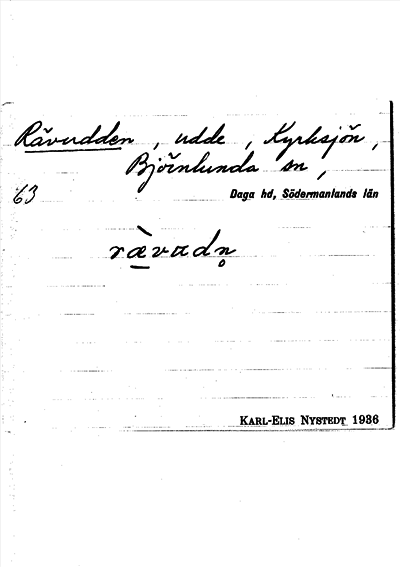 Rävudden, udde, Kyrksjön,
Björnlunda sn,
63 Daga hd, Södermanlands län
ræ̠̀vadn̥
KARL-ELIS NYSTEDT 1936